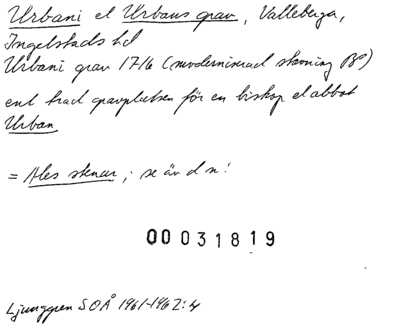 Urbani el Urbans grav, Valleberga,
Ingelstads hd
Urbani grav 1716 (moderniserad skrivning BP)
enl trad gravplatsen för en biskop el abbot
Urban
= Ales stenar; se äv d n!
00031819
Ljunggren SOÅ 1961-1962:4